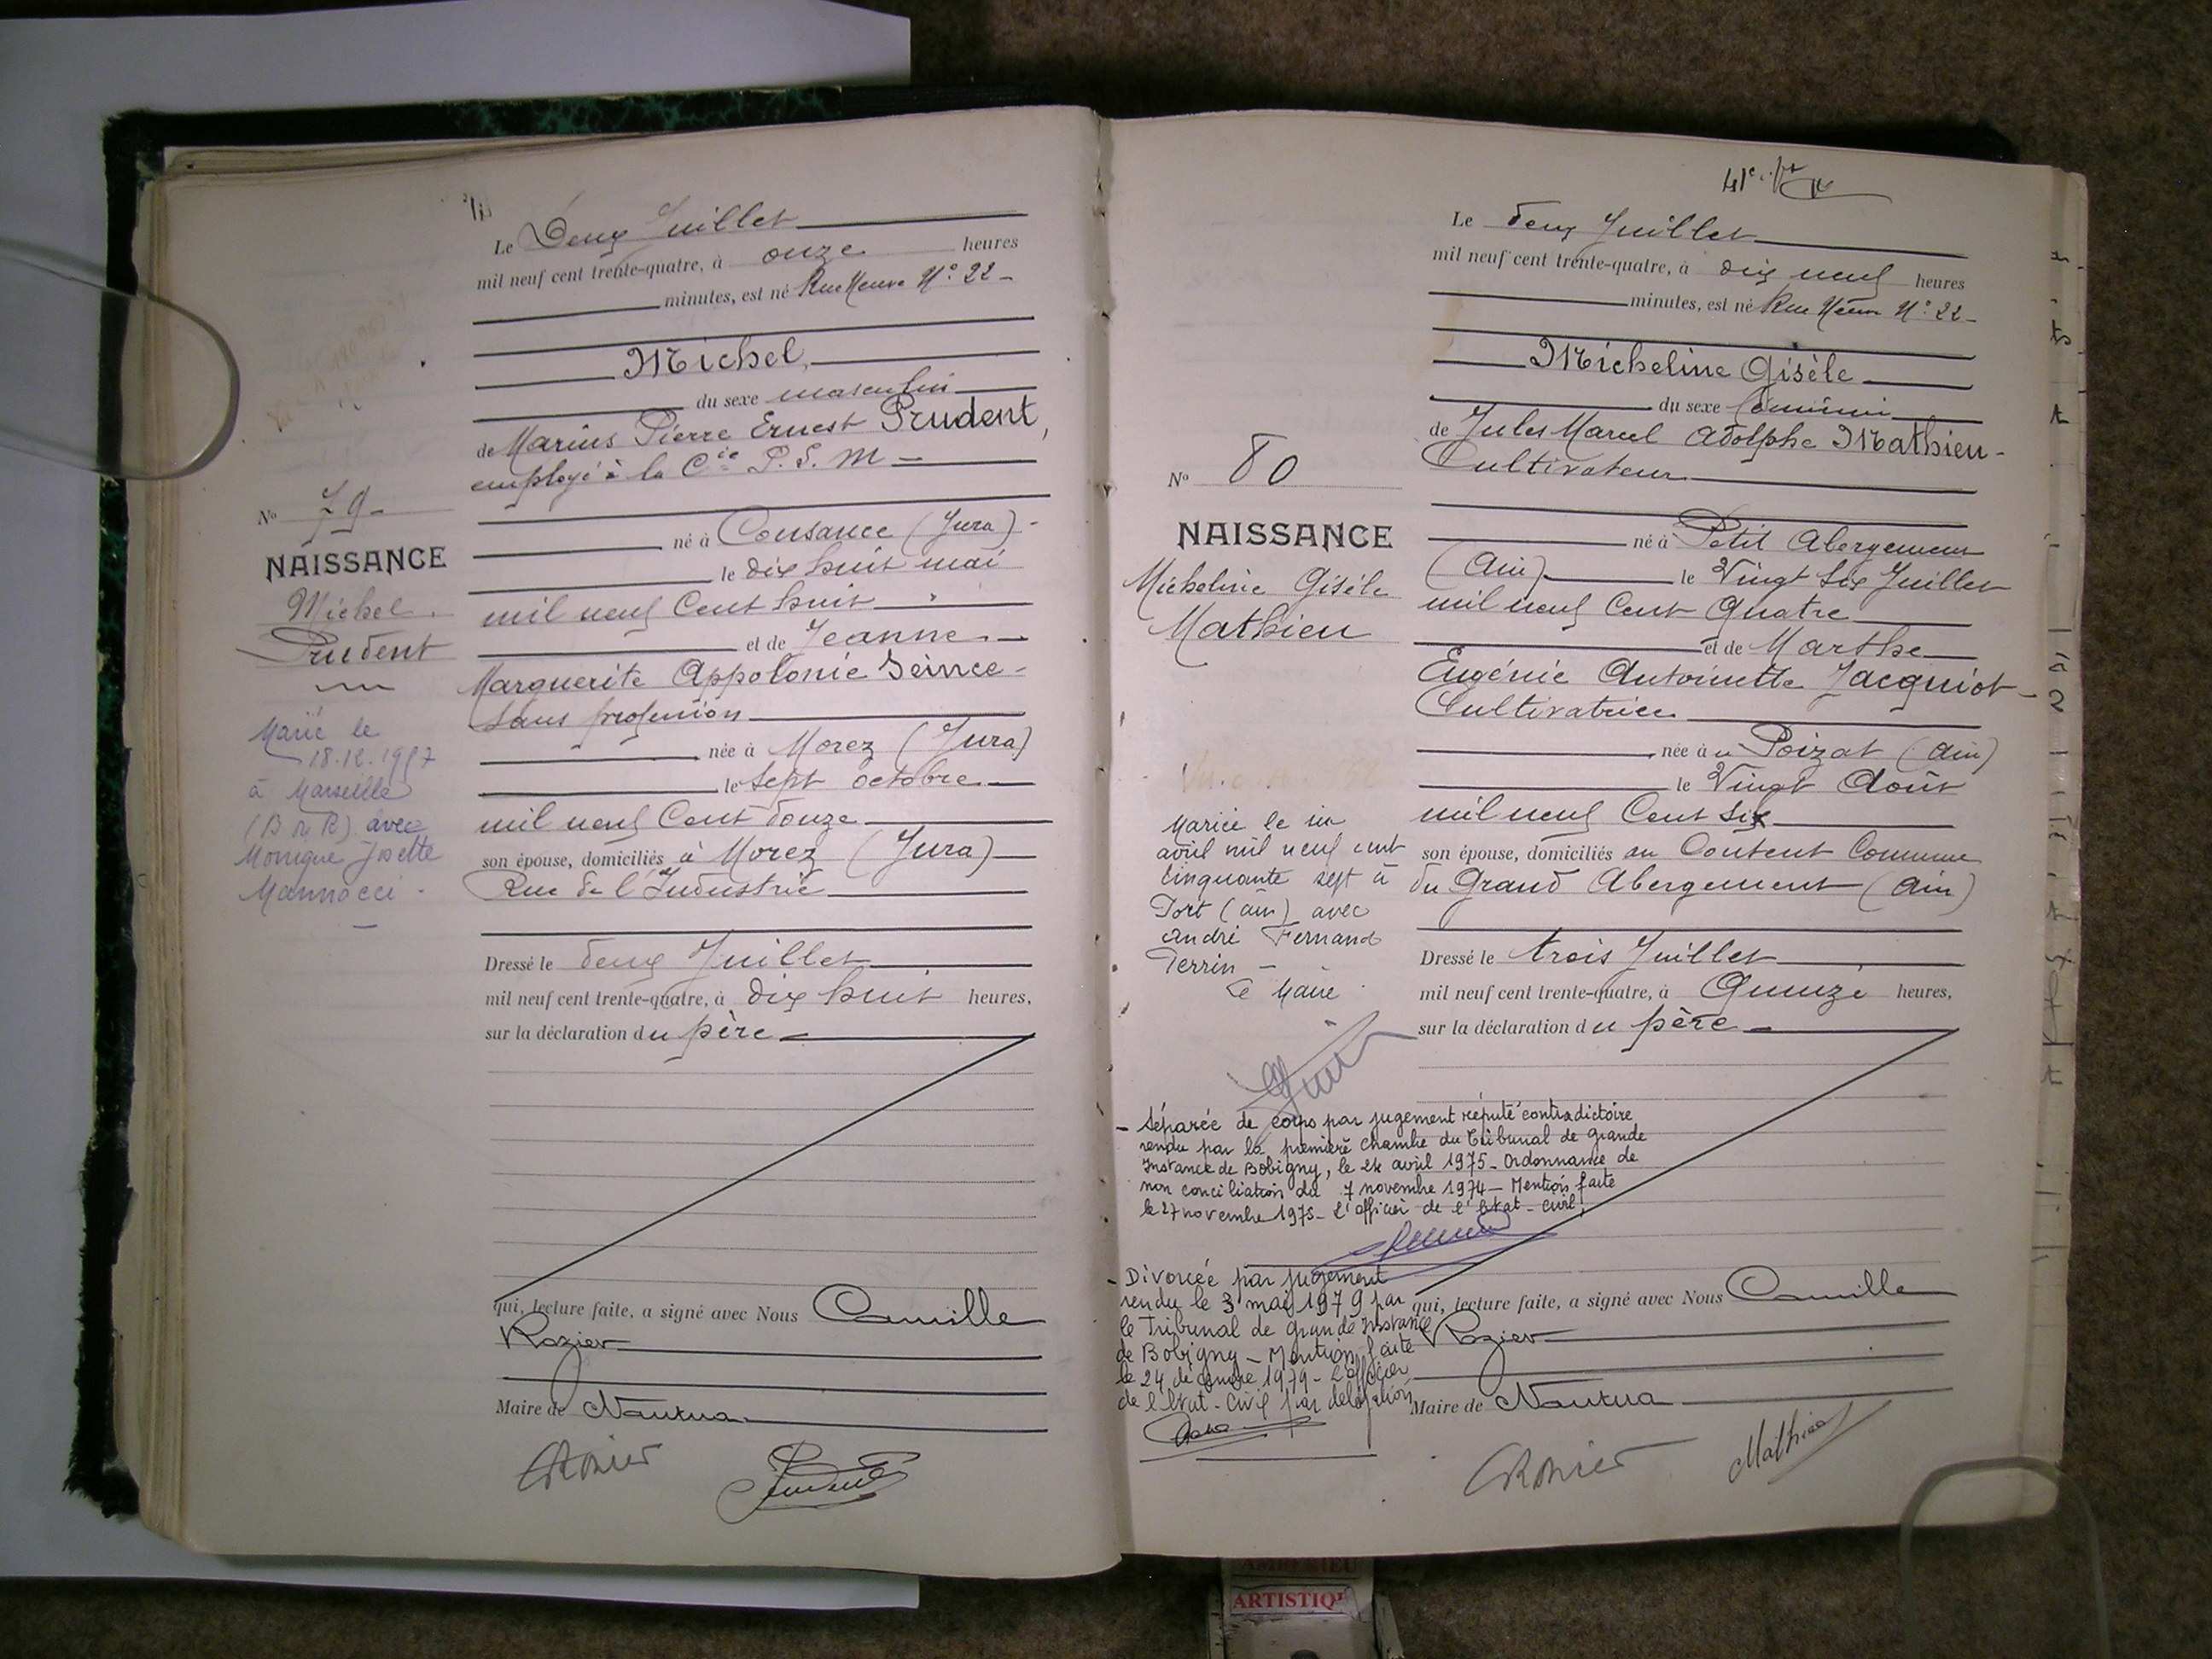 Le Deux Juillet
mil neuf cent trente-quatre, à onze heures
minutes, est né Rue Neuve N° 22
Michel,
du sexe masculin
de Marius Pierre Ernest Prudent,
employé à la Cie P. L. M
né à Cousance (Jura)
le dix huit mai
mil neuf Cent huit
et de Jeanne
Marguerite Appolonie
Sans profession
née à Morez (Jura)
le Sept octobre
mil neuf Cent douze
son épouse, domiciliés à Morez (Jura)
Rue de l'Industrie
Dressé le deux Juillet
mil neuf cent trente-quatre, à dix huit heures,
sur la déclaration du père
qui, lecture faite, a signé avec Nous Camille
Rozier
Maire de Nantua
N° 79
NAISSANCE
Michel
Prudent
Marié le
à Marseille
(B du R) avec
Monique Josette
Mannocci
41e
Le deux Juillet
mil neuf cent trente-quatre, à dix neuf heures
minutes, est né Rue Neuve N° 22
Micheline Gisèle
du sexe féminin
de Jules Marcel Adolphe Mathieu
Cultivateur
né à Petit Abergement
(Ain) le Vingt Six Juillet
mil neuf Cent Quatre
et de Marthe
Eugénie Antoinette Jacquiot
Cultivatrice
née à u Poizat (Ain)
le Vingt Août
mil neuf Cent Six
son épouse, domiciliés au Content Commune
du Grand Abergement (Ain)
Dressé le trois Juillet
mil neuf cent trente-quatre, à Quinze heures,
sur la déclaration du père
qui, lecture faite, a signé avec Nous Camille
Rozier
Maire de Nantua
Mathieu
N° 80
NAISSANCE
Micheline Gisèle
Mathieu
Mariée le
avril mil neuf cent
cinquante sept à
Port (ain) avec
André Fernand
Perrin
Le Maire
- Séparée de corps par jugement réputé contradictoire
rendu par la première chambre du Tribunal de Grande
Instance de Bobigny, le 24 avril 1975 - Ordonnance de
non conciliation du 7 novembre 1974 - Mention faite
le 27 novembre 1975 - L'officier de l'Etat-Civil,
- Divorcée par jugement
rendu le 3 mai 1979 par
le Tribunal de Grande Instance
de Bobigny - Mention faite
le 24 décembre 1979 - L'officier
de l'Etat-Civil par délégation
ARTISTIQ